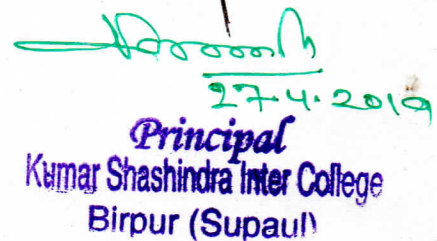 27.4.2019
Principal
Kumar Shashindra Inter College
Birpur (Supaul)